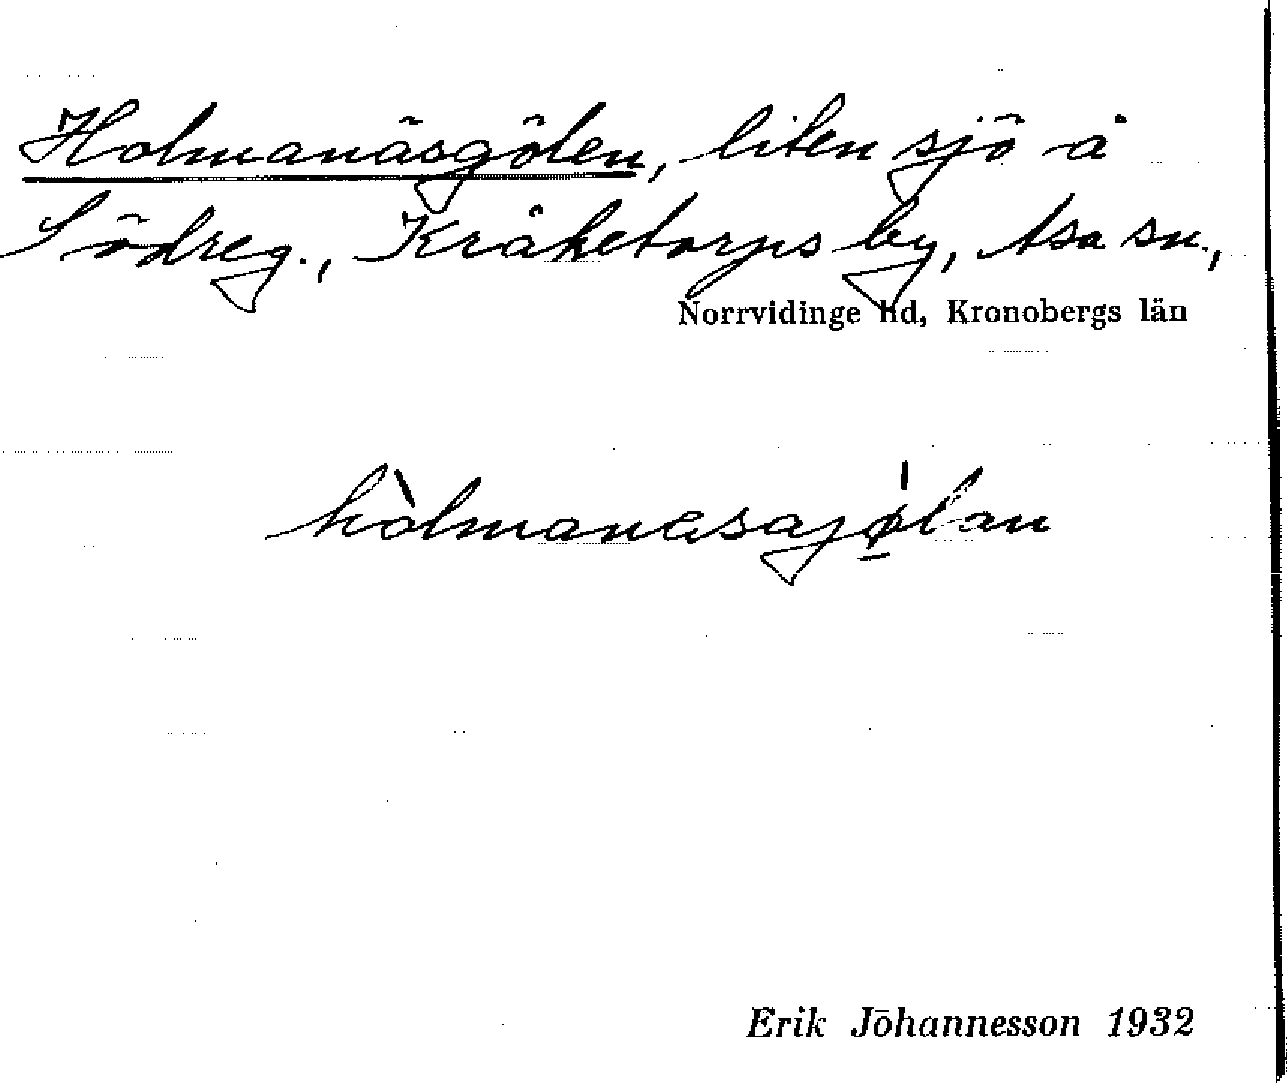 Holmanäsgölen, liten sjö å
Södreg., Kråketorps by, Asa sn.,
Norrvidinge hd, Kronobergs län
hòlmanæsajǿ̲lan
Erik Johannesson 1932